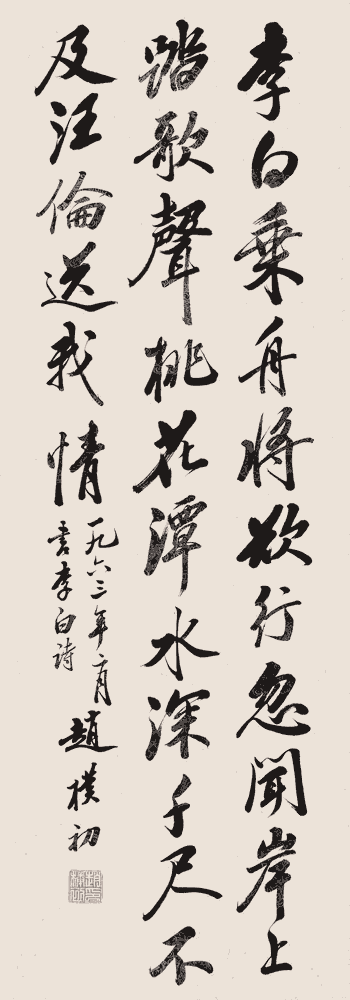 李白乘舟將欲行忽聞岸上
踏歌聲桃花潭水深千尺不
及汪倫送我情
一九六三年二月
書李白詩
趙樸初